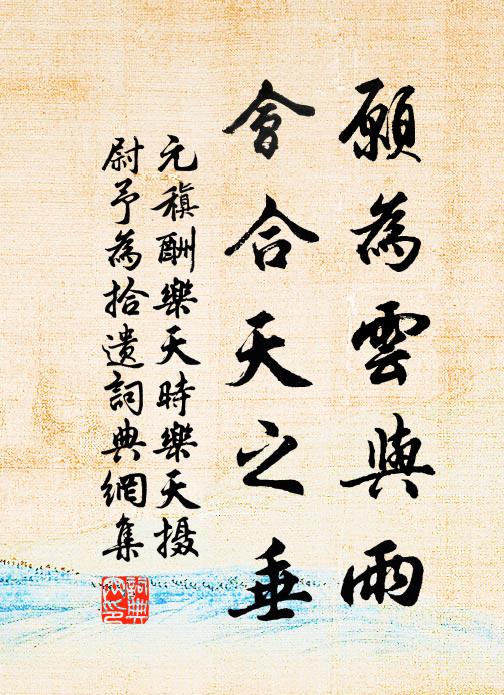 願為雲與雨
會合天之垂
元稹酬樂天時樂天摄
尉予為拾遗詞典網集